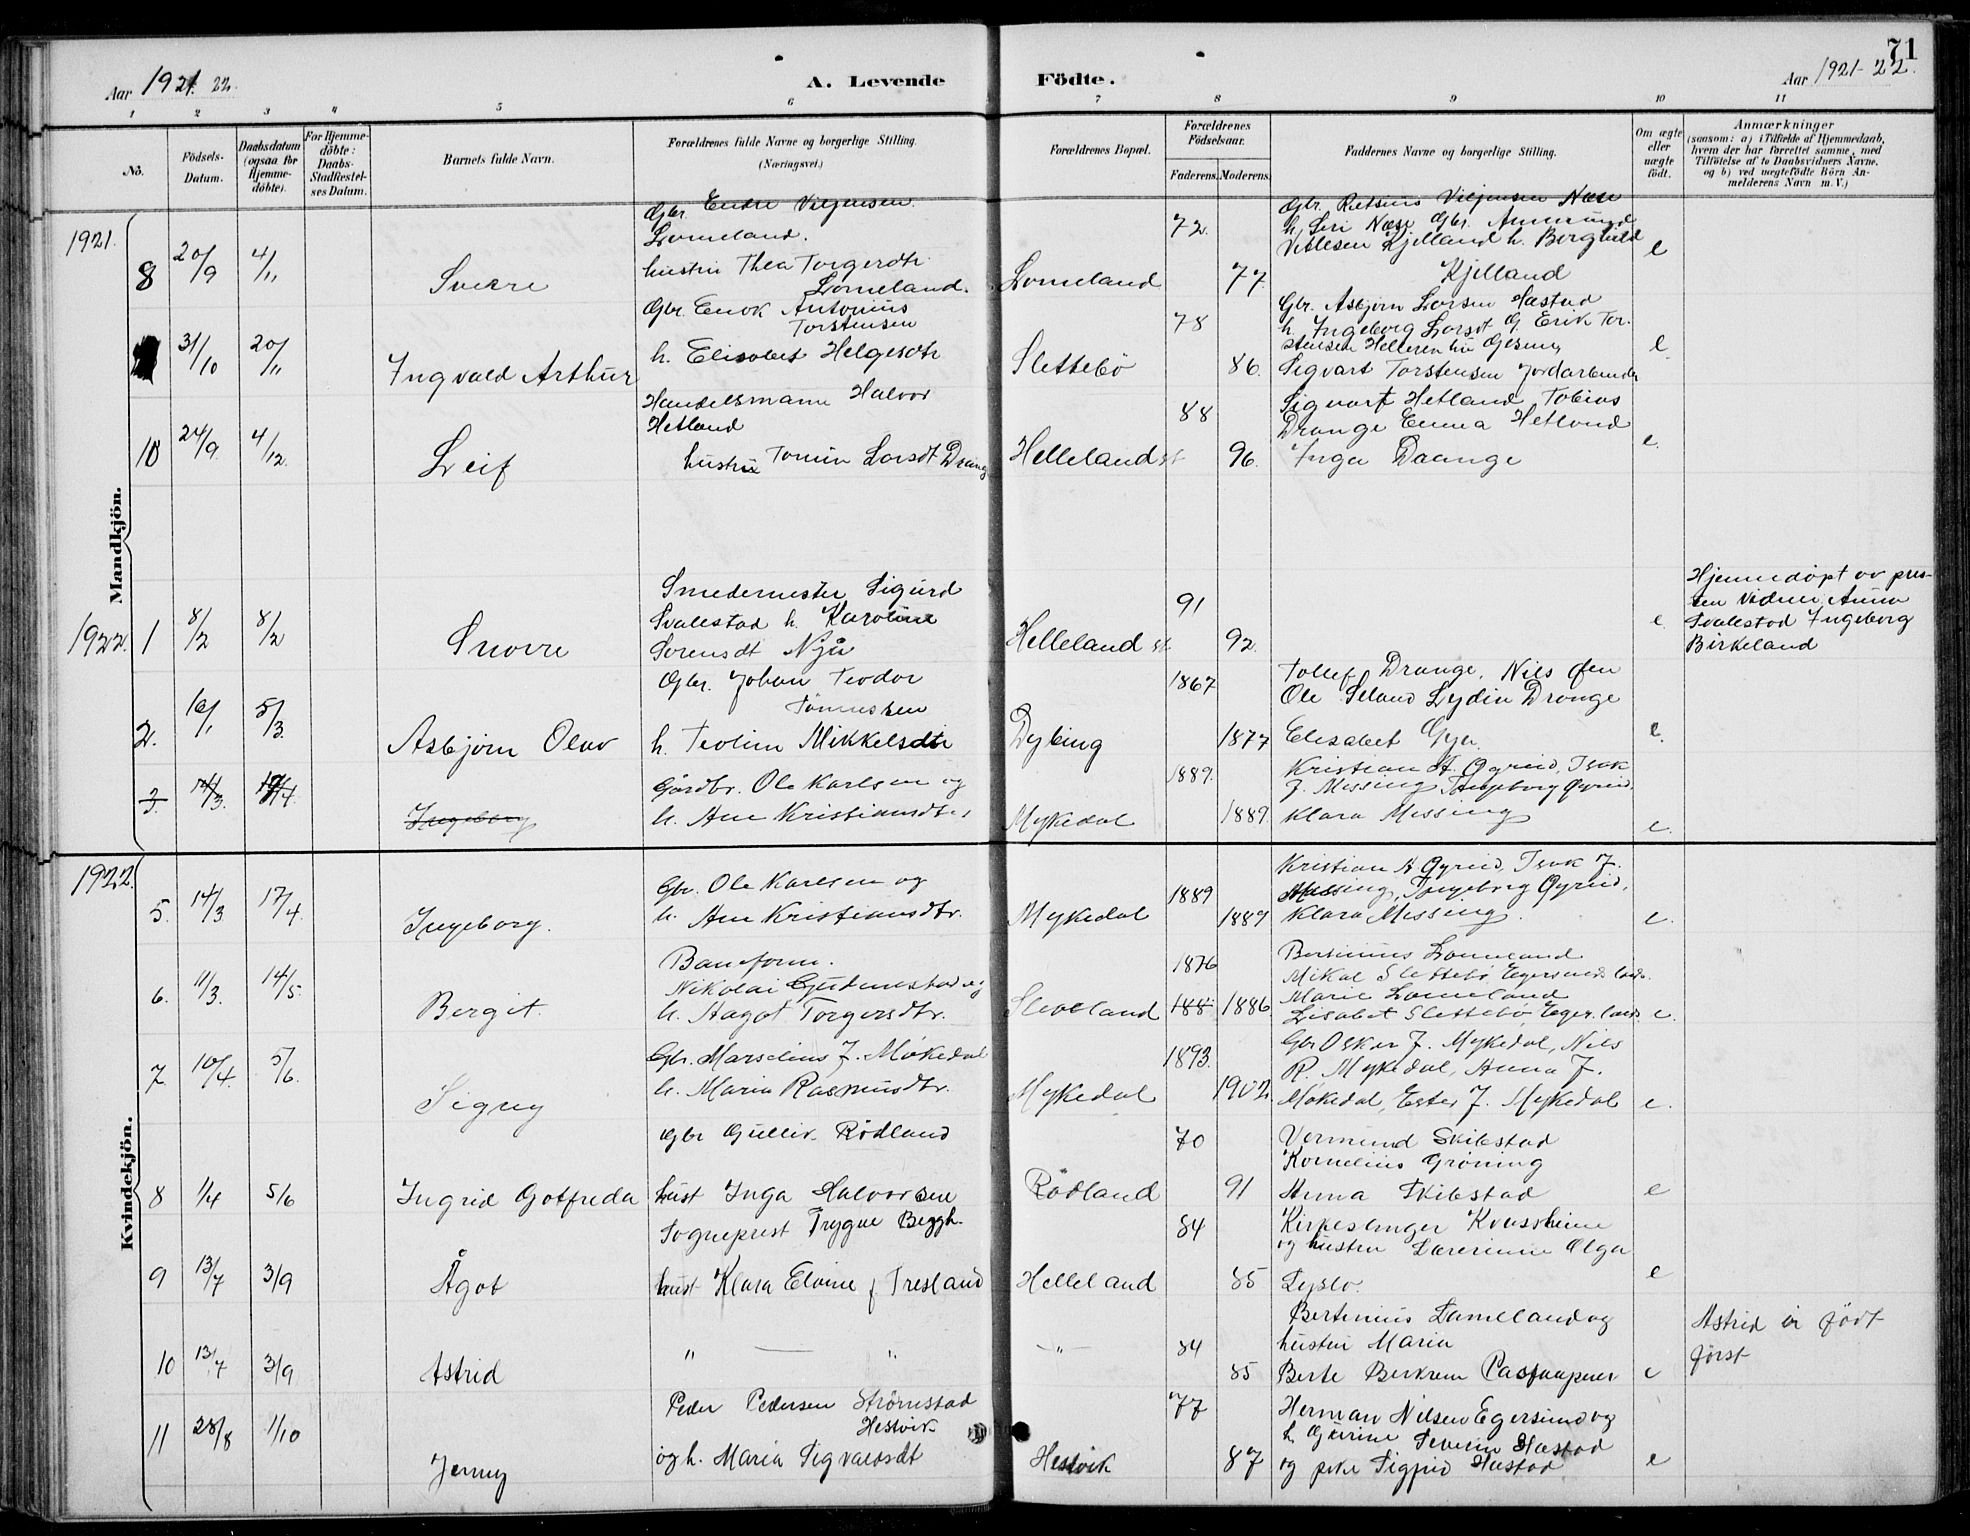 71
Aar 1921. 22.
A. Levende Födte.
Aar 1921-22.
1 2 3 4 5 6 7 8 9 10 11
No.
Födsels-Datum.
Daabsdatum (ogsaa for Hjemme-döbte).
For Hjemme-döbte: Daabs-Stadfæstel-ses Datum.
Barnets fulde Navn.
Forældrenes fulde Navne og borgerlige Stilling. (Næringsvei.)
Forældrenes Bopæl.
Forældrenes Födselsaar.
Faderens. Moderens.
Faddernes Navne og borgerlige Stilling.
Om ægte eller uægte födt.
Anmærkninger
(saasom: a) i Tilfælde af Hjemmedaab, hvem der har forrettet samme, med Tilföielse af to Daabsvidners Navne, og b) ved uægtefödte Börn Anmelderens Navn m. V.)
Mandkjön.
1921.
8 20/9 4/11 Sverre
Gbr. Endre Viljensen
Lomeland.
hustru Thea Torgersdtr
Lomeland.
Lomeland 72 77.
Viljensen Næse
h. Siri Næse Gbr.
Vetlesen Kjelland h. Borghild
Kjelland
e
31/10 20/11 Ingvald Arthur
Gbr. Enok Antonius
Torstensen
h. Elisabet Helgesdtr
Slettebö 78 86.
Gbr. Asbjørn Larsen Hæstad
h. Ingeborg Larsdt G Erik Tor-
stensen Helleren
Sigvart Torstensen Jordarbeider
e
10 24/9 4/12. Leif
Handelsmann Halvor
Hetland
hustru Larsdt Drang
Helleland st 88 96.
Sigvart Hetland Tobias
Drange Emma Hetland
Inga Drange
e.
1922. 1 8/2 8/2 Snorre
Smedemester Sigurd
Svalestad h. Karoline
Sorensdt
Helleland st. 91 92.
e.
Hjemmedøpt av pres-
ten Vidner Anna
Svalestad Ingeborg
Birkeland
2. 16/1 5/3. Asbjørn Olav
Gbr. Johan Teodor
Tönnessen
h. Teoline Mikkelsdtr
Dybing 1867 1877
Tollef Drange, Nils
Ole Seland Lydia Drange
Elisabet Gya
e.
3. 14/3. 17/4. Ingeborg
Gårdbr. Ole Karlsen og
h. Ane Kristiansdtr
Mykedal 1889. 1889.
Kristian A. Øgreid, Isak
J. Missing Ingeborg Øgreid.
Klara Missing
e.
Kvindekjön.
1922.
5. 14/3. 17/4. Ingeborg.
Gbr. Ole Karlsen og
h. Ane Kristiansdtr.
Mykedal 1889 1889
Kristian A Øgreid, Isak J.
Missing, Ingeborg Øgreid,
Klara Missing.
e.
6. 11/3. 14/5. Bergit.
Baneform.
Nikolai Gudmestad og
h. Aagot Torgersdtr.
Sleveland 1876 188 1886
Bertinius Lomeland
Mikal Slettebö Egersunds lands.
Marie Lomeland
Lisabet Slettebö, Eger. lands.
e.
7 10/4. 5/6. Signy
Gbr. Marselius J. Mökedal
h. Maria Rasmusdtr.
Mykedal 1893. 1902
Gbr Oskar J. Mykedal, Nils
R. Mykedal, Anna J.
Mökedal, Ester J. Mykedal
e.
8 1/4 5/6 Ingrid Gotfreda
Gbr Gulliv. Rödland
hust Inga Halvorsen
Rödland 70 91
Vermund Skibstad
Kornelius Gröning
Anna Skibstad
e
9 13/7 3/9 Ågot
Sogneprest Trygve Beggh.
hust Klara Elvine f Tresland
Helleland 84 85
Kirkesanger Kvassheim
og hustru Lærerinne Olga
Lyslo.
e
10 13/7 3/9 Astrid
" — "
—"—
84 85
Bertinius Lomeland og
hustru Maria
Berte Berkrem
e
Astrid er födt
først
11 28/8 1/10 Jenny
Peder Pedersen Strömstad
Hestvik
og h. Maria Sigvaldsdt
Hestvik 77 87
Herman Nilsen Egersund og
h. Gurine Severin Hæstad
og pike Sigfrid Hæstad
e